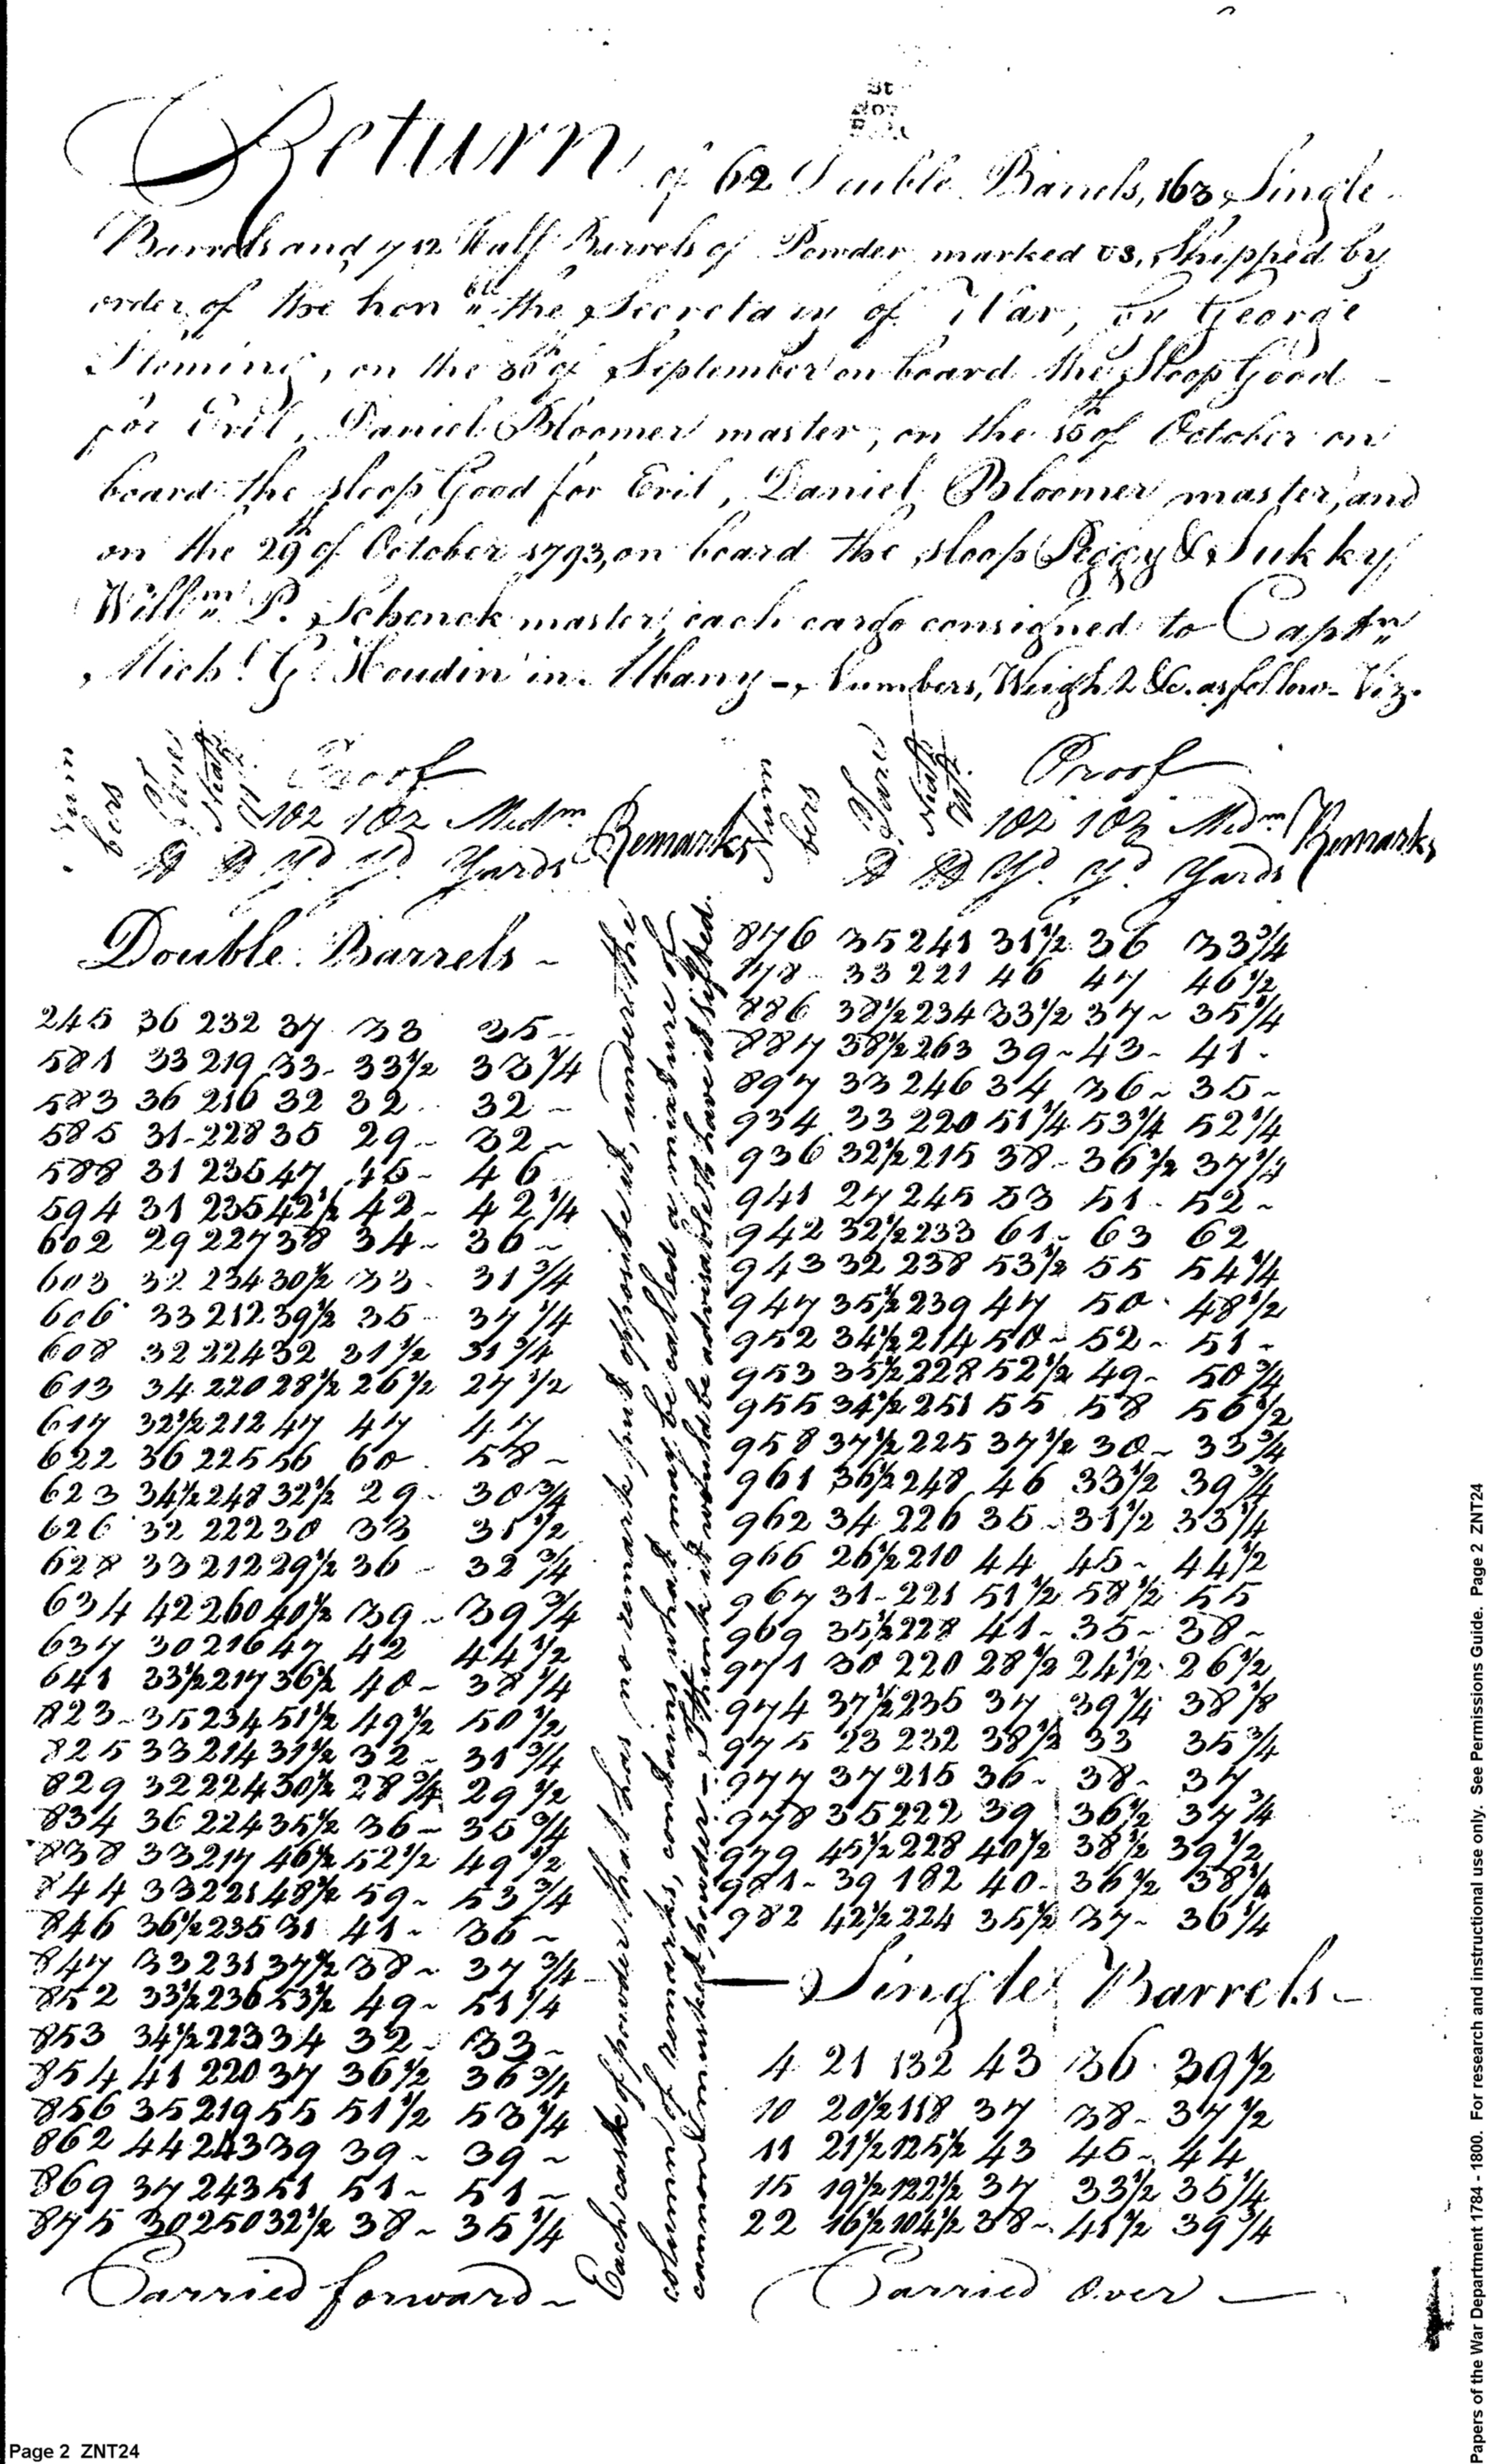 Return of 62 Double Barrels, 163 Single
Barrels and 712 Half Barrels of Powder marked US, Shipped by
order of the hon ble the Secretary of War, by George
Fleming, on the of September on board the Sloop Good
for Evil, Daniel Bloomer master, on the 15th of October on
board the sloop Good for Evil, Daniel Bloomer master, and
on the 29th of October 1793, on board the sloop Peggy & Sukky
Willm P. Schenck master, each cargo consigned to Captn
Michl G. Houdin in Albany -, Numbers, Weight &c. as follow - Viz.
Numbers Tare Neat Wt. Proof Remarks
1 oz 1 oz Medm
Yd Yd Yards
Double Barrels ~
245 36 232 37 33 35 ~
581 33 219 33 - 33½ 33¼
583 36 216 32 32 32 ~
585 31 - 228 35 29 - 32 ~
588 31 235 47 45 - 46
594 31 235 42½ 42 - 42¼
602 29 227 38 34 - 36 ~
603 32 234 30½ 33 - 31¾
606 33 212 39½ 35 - 37¼
608 32 224 32 31½ 31¾
613 34 220 28½ 26½ 27½
617 32½ 212 47 47 47
622 36 225 56 60 58 ~
623 34½ 248 32½ 29 - 30¾
626 32 222 30 33 31½
628 33 212 29½ 36 - 32¾
634 42 260 40½ 39 - 39¾
637 30 216 47 42 44½
641 33½ 217 36½ 40 - 38¼
823 - 35 234 51½ 49½ 50½
825 33 214 31½ 32 - 31¾
829 32 224 30½ 28¾ 29½
834 36 224 35½ 36 - 35¾
838 33 217 46½ 52½ 49½
844 33 221 48½ 59 - 53¾
846 36½ 235 31 41 - 36 ~
847 33 231 37½ 38 ~ 37¾
852 33½ 236 53½ 49 - 51¼
853 34½ 223 34 32 - 33 ~
854 41 220 37 36½ 36¾
856 35 219 55 51½ 53¼
862 44 243 39 39 - 39 ~
869 37 243 51 51 - 51 ~
875 30 250 32½ 38 ~ 35¼
Carried forward ~
Each cask of powder that has no remark put opposite it, under the
column of remarks, may be called a mixture of
cannon & musket powder - I think it would be advisable to have it sifted.
Numbers Tare Neat Wt. Proof Remarks
1 oz 1 oz Medm
Yd Yd Yards
876 35 241 31½ 36 33¾
878 - 33 221 46 47 46½
886 38½ 234 33½ 37 ~ 35¼
887 38½ 263 39 ~ 43 - 41 -
897 33 246 34 36 ~ 35 ~
934 33 220 51¼ 53¼ 52¼
936 32½ 215 38 - 36½ 37¼
941 27 245 53 51 - 52 ~
942 32½ 233 61 - 63 62
943 32 238 53½ 55 54¼
947 35½ 239 47 50 - 48½
952 34½ 214 50 - 52 - 51 -
953 35½ 228 52½ 49 - 50¾
955 34½ 251 55 58 56½
958 37½ 225 37½ 30 ~ 33¾
961 36½ 248 46 33½ 39¾
962 34 226 35 - 31½ 33¼
966 26½ 210 44 45 ~ 44½
967 31 - 221 51½ 58½ 55
969 35½ 228 41 - 35 - 38 ~
971 30 220 28½ 24½ 26½
974 37½ 235 37 39¼ 38⅛
975 23 232 38½ 33 35¾
977 37 215 36 - 38 - 37
978 35 222 39 36½ 37¾
979 45½ 228 40½ 38½ 39½
981 - 39 182 40 - 36½ 38¼
982 42½ 224 35½ 37 - 36¼
Single Barrels -
4 21 132 43 36 39½
10 20½ 118 37 38 - 37½
11 21½ 125½ 43 45 - 44
15 19½ 122½ 37 33½ 35¼
22 16½ 104½ 38 - 41½ 39¾
Carried over -
Papers of the War Department 1784 - 1800. For research and instructional use only. See Permissions Guide. Page 2 ZNT24
Page 2 ZNT24